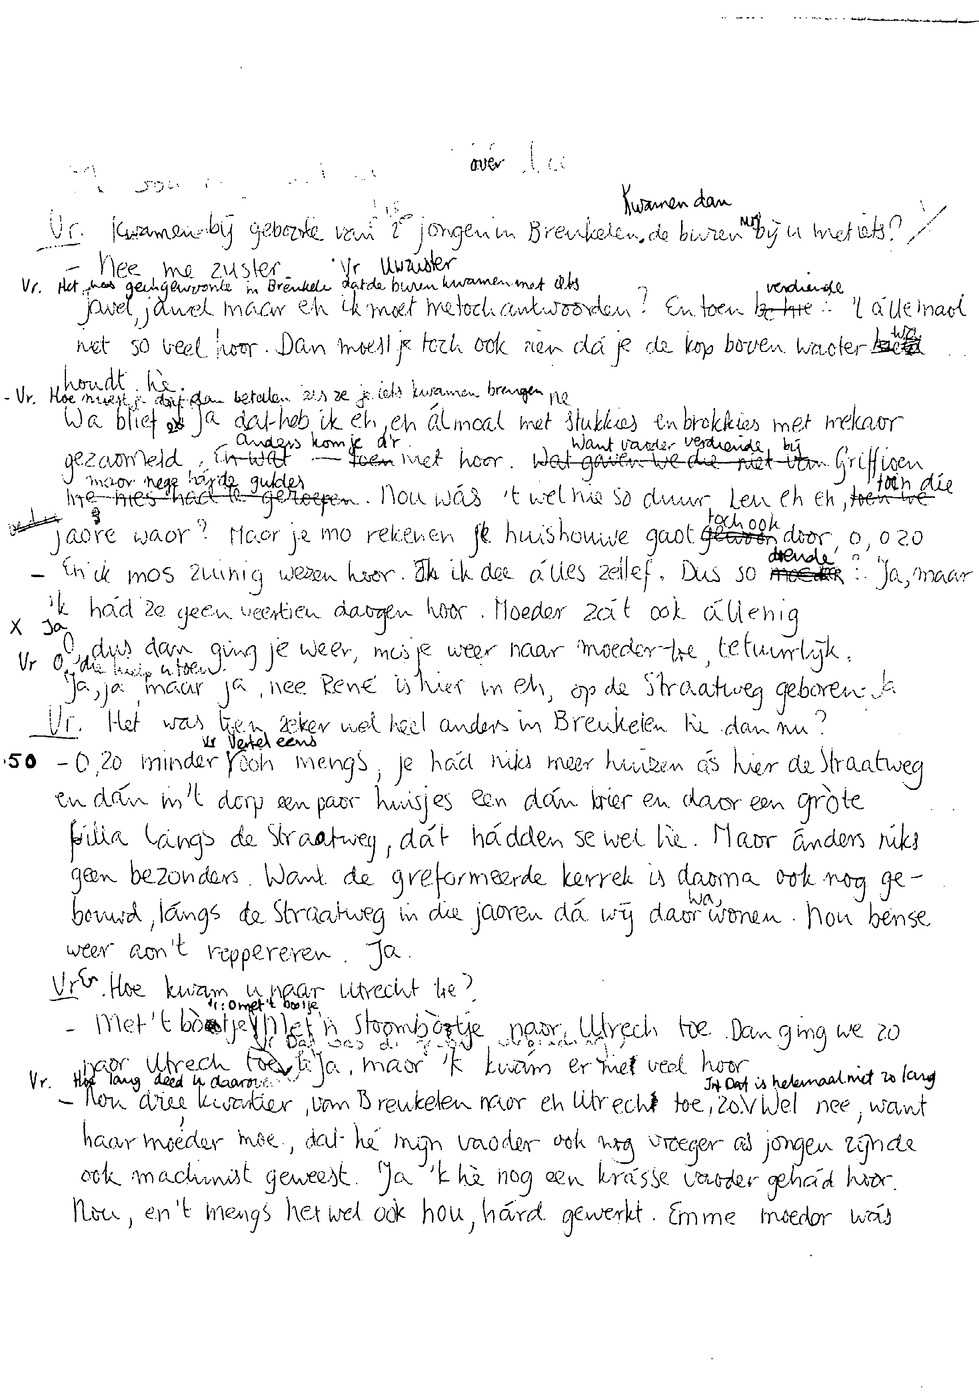 over
Kwamen dan
Vr. Kwamen bij geboorte van 2e jongen in Breukelen, de buren bij u met iets?
- Nee me zuster. Vr Uw zuster
Vr. Het was gewoonte in Breukelen dat de buren kwamen met iets
jawel, jawel maar eh ik moet me toch antwoorden? En toen verdiende 't állemaal
net so veel hoor. Dan moest je toch ook zien dá je de kop boven waoter
houdt hè.
- Vr. Hoe moest je dan betalen als ze je iets kwamen brengen
Wa blief Ja dat heb ik eh, eh álmoal met stukkies en brokkies met mekaor
Anders kom je d'r Want vaoder verdiende bij
gezaomeld, En wat toen niet hoor. Wat gaven we die niet van Griffioen
maor nege hárde guldes toen die
. Nou wás 't wel nie so duur, Len eh eh, toen we
jaore waor? Maor je mo rekenen je huishouwe gaot toch ook door, o, o zo
- En ik mos zuinig wezen hoor. Ik dee álles zellef. Dus so doende? Ja, maar
ik hád ze geen veertien daogen hoor. Moeder zát ook állenig
X Ja
O, dus dan ging je weer, mos je weer naor moeder toe, tetuurlijk.
Vr O, die hielp u toen
Ja, ja, maar ja, nee René is hier in eh, op de Straatweg geboren. Ja
Vr. Het was toen zeker wel heel anders in Breukelen hè dan nu?
Vr Vertel eens
50 - O, zo minder ooh mengs, je hád niks meer huizen ás hier de Straatweg
en dán in 't dorp een paor huisjes een dán hier en daor een gròte
filla langs de Straatweg, dát hádden se wel hè. Maor ánders niks
geen bezonders. Want de greformeerde kerrek is daorna ook nog ge-
bouwd, lángs de Straatweg in die jaoren dá wij daor wonen. Nou bense
weer aon't reppereren. Ja.
Vr. Hoe kwam u naar Utrecht hè?
Vr: O met 't bootje
- Met 't bòòtje, Met 'n stoombòòtje naor Utrech toe. Dan ging we zo
naor Utrech toe. Ja, maor 'k kwám er niet veel hoor
Vr. Hoe lang deed u daarover Vr Dat is helemaal niet zo lang
- Nou drie kwartier, vam Breukelen naor eh Utrecht toe, zo. Wel nee, want
haar moeder moe, dat hè mijn vaoder ook nog vroeger as jongen zijnde
ook machinist geweest. Ja 'k hè nog een krásse vaoder gehád hoor.
Nou, en 't mengs het wel ook hou, hárd gewerkt. Emme moedor wás